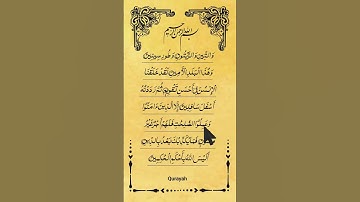 بسم الله الرحمن الرحيم
وَالتِّينِ وَالزَّيْتُونِ وَطُورِ سِينِينَ
وَهَٰذَا الْبَلَدِ الْأَمِينِ لَقَدْ خَلَقْنَا
الْإِنسَانَ فِي أَحْسَنِ تَقْوِيمٍ ثُمَّ رَدَدْنَاهُ
أَسْفَلَ سَافِلِينَ إِلَّا الَّذِينَ آمَنُوا
وَعَمِلُوا الصَّالِحَاتِ فَلَهُمْ أَجْرٌ غَيْرُ
فَمَا يُكَذِّبُكَ بَعْدُ بِالدِّينِ
أَلَيْسَ اللَّهُ بِأَحْكَمِ الْحَاكِمِينَ
Qurayah